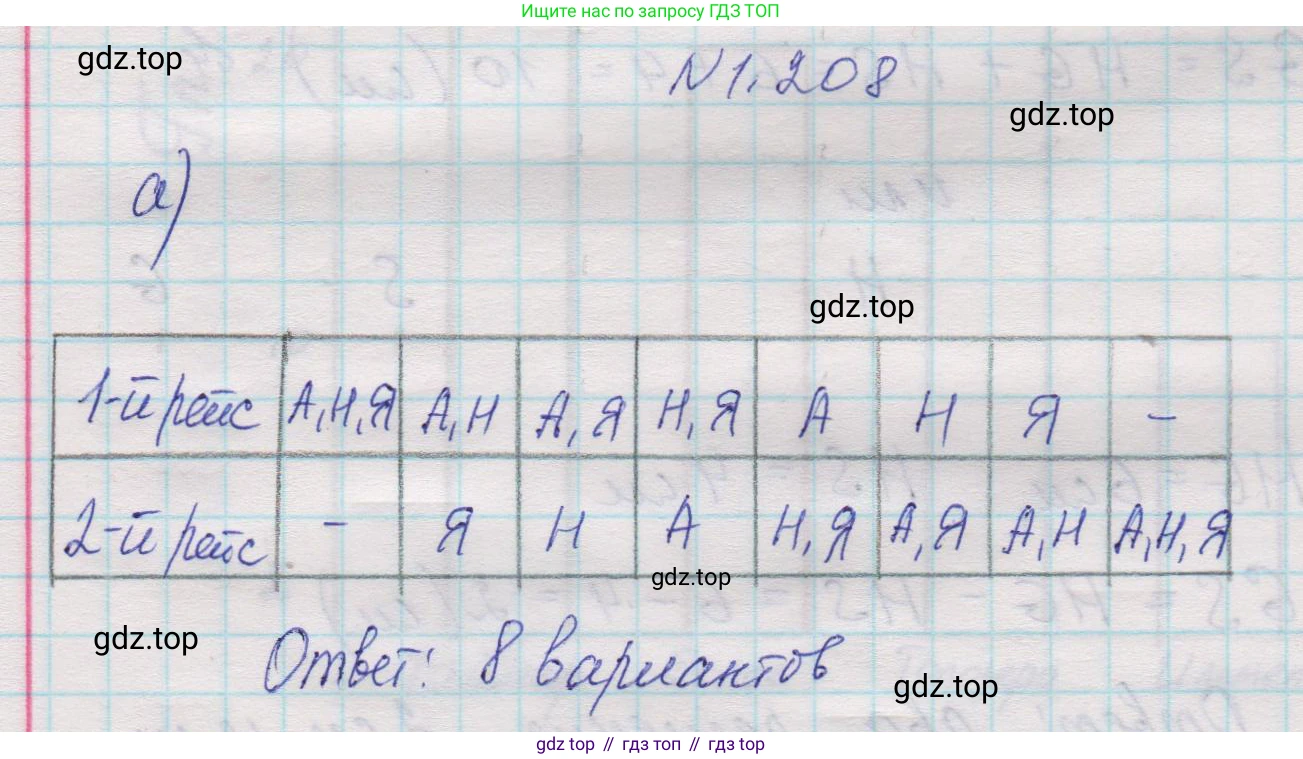 Ищите нас по запросу ГДЗ ТОП
gdz.top
N 1.208
gdz.top
а)
gdz.top
1-й рейс А,Н,Я А,Н А,Я Н,Я А Н Я –
2-й рейс – Я Н А Н,Я А,Я А,Н А,Н,Я
gdz.top
gdz.top
Ответ: 8 вариантов
gdz.top
gdz top // гдз топ // gdz top